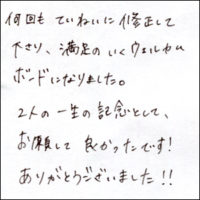 何回も ていねいに 修正して
下さり、満足の いく ウェルカム
ボードに なりました。
2人の 一生の 記念として、
お願して 良かったです!
ありがとうございました!!